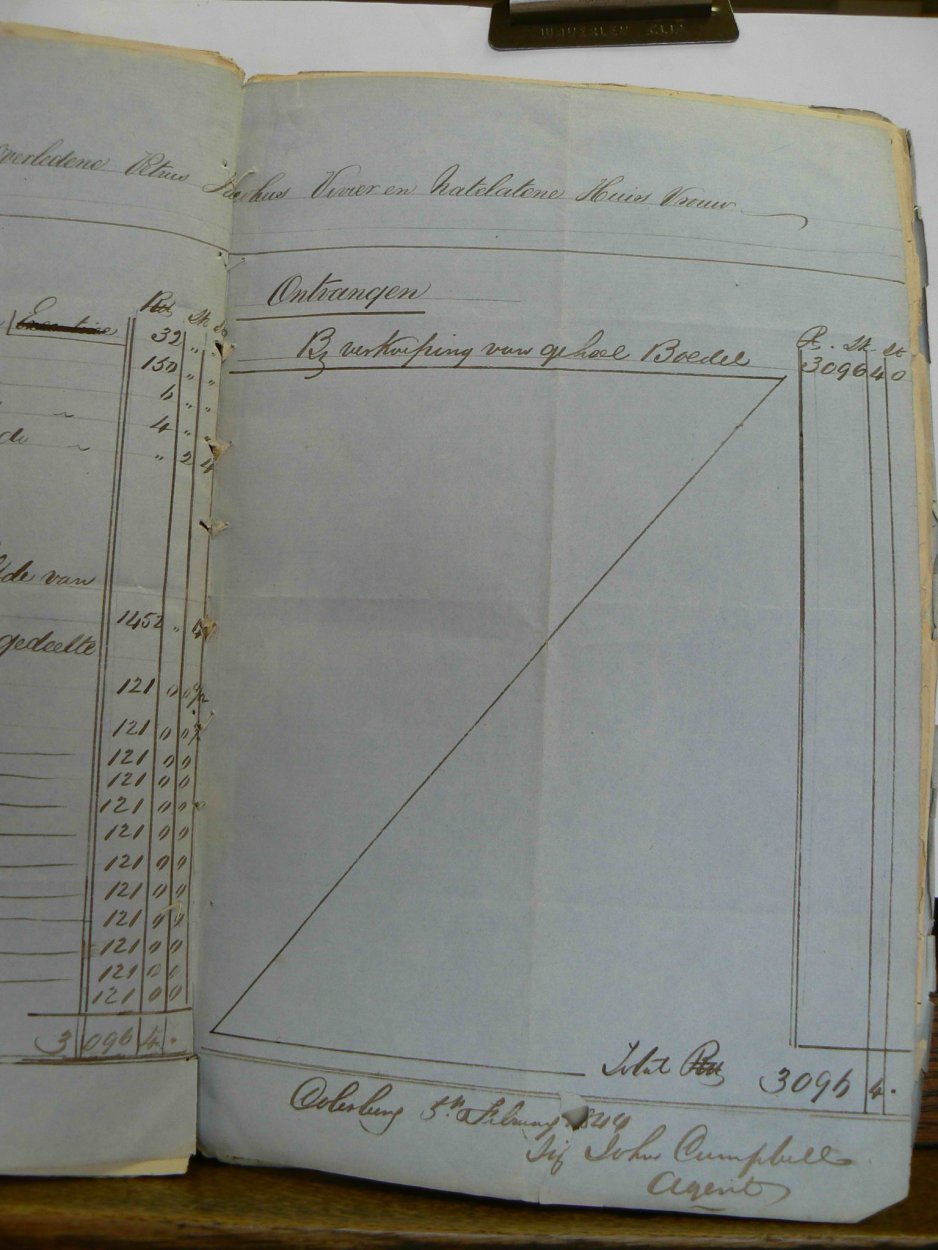 WAVERLEY CLIP
verledene Petrus Jacobus Vivier en Natelatene Huis Vrouw
Rds Sk St
32 " "
150 " "
6 " "
4 " "
do " 2 4
de van
1452 "
gedeelte
121 0 0
121 0 0
121 0 0
121 0 0
121 0 0
121 0 0
121 0 0
121 0 0
121 0 0
121 0 0
121 0 0
121 0 0
3096 4 .
Ontvangen
R. Sk St
By verkoping van geheel Boedel 3096 4 0
Total Rds 3096 4 .
Colesberg 5th February 1844
Sig John Campbell
Agent